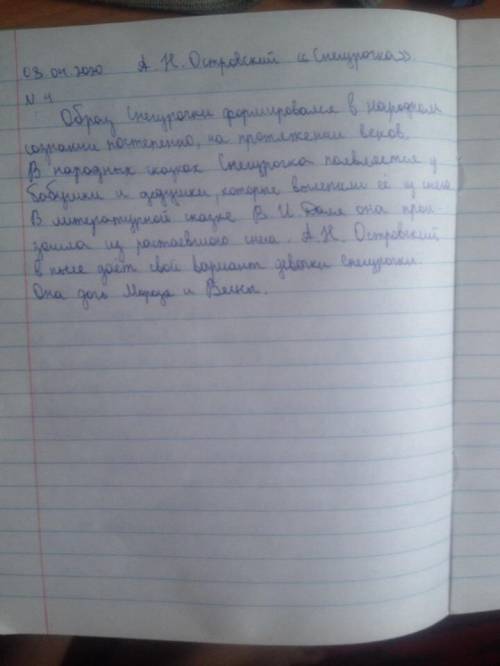 03.04.2020 А. Н. Островский «Снегурочка».
N 4
Образ Снегурочки формировался в народном
сознании постепенно, на протяжении веков.
В народных сказках Снегурочка появляется у
бабушки и дедушки, которые вылепили её из снега.
В литературной сказке В. И. Даля она прои-
зошла из растаявшего снега. А. Н. Островский
в пьесе даёт свой вариант девочки снегурочки.
Она дочь Мороза и Весны.